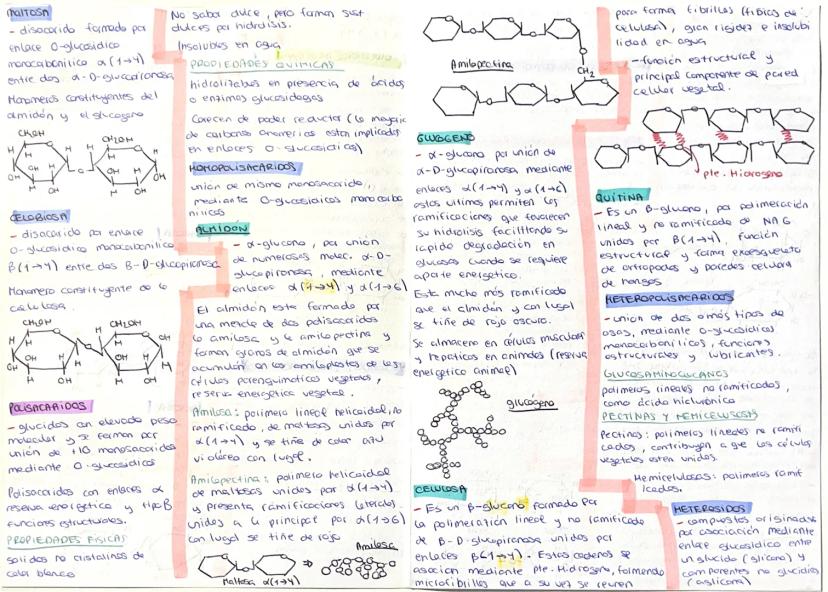 MALTOSA
- disacárido formado por
enlace O-glucosídico
monocarbonílico α(1→4)
entre dos α-D-glucopiranosa
Monómeros constituyentes del
almidón y el glucógeno
CH2OH
CH2OH
H
OH
O
CELOBIOSA
- disacárido por enlace
O-glucosídico monocarbonílico
β(1→4) entre dos β-D-glucopiranosa
Monómero constituyente de la
celulosa.
CH2OH
CH2OH
H
OH
O
POLISACÁRIDOS
- glúcidos con elevado peso
molecular y se forman por
unión de +10 monosacáridos
mediante O-glucosídicos
Polisacáridos con enlaces α
reserva energética y tipo β
funciones estructurales.
PROPIEDADES FÍSICAS
sólidos no cristalinos de
color blanco
No sabor dulce, pero forman sust
dulces por hidrólisis.
Insolubles en agua
PROPIEDADES QUÍMICAS
hidrolizables en presencia de ácidos
o enzimas glucosidasas
Carecen de poder reductor (la mayoría
de carbonos anoméricos están implicados
en enlaces O-glucosídicos)
HOMOPOLISACÁRIDOS
unión de mismo monosacárido,
mediante O-glucosídicos monocarbo
nílicos
ALMIDÓN
- α-glucano, por unión
de numerosas molec. α-D-
glucopiranosa, mediante
enlaces α(1→4) y α(1→6)
El almidón está formado por
una mezcla de dos polisacáridos
la amilosa y la amilopectina y
forman granos de almidón que se
acumulan en los amiloplastos de las
células parenquimáticas vegetales,
reserva energética vegetal.
Amilosa: polímero lineal helicoidal, no
ramificado, de maltosas unidos por
α(1→4) y se tiñe de color azul
violáceo con lugol.
Amilopectina: polímero helicoidal
de maltosas unidos por α(1→4)
y presenta ramificaciones laterales
unidos a la principal por α(1→6)
con lugol se tiñe de rojo
Amilosa
maltosa α(1→4)
Amilopectina
CH2
GLUCÓGENO
- α-glucano por unión de
α-D-glucopiranosa mediante
enlaces α(1→4) y α(1→6)
estos últimos permiten las
ramificaciones que favorecen
su hidrólisis facilitando su
rápida degradación en
glucosas cuando se requiere
aporte energético.
Está mucho más ramificado
que el almidón y con lugol
se tiñe de rojo oscuro.
Se almacena en células musculares
y hepáticas en animales (reserva
energética animal)
glucógeno
CELULOSA
- Es un β-glucano formado por
la polimeración lineal y no ramificado
de β-D-glucopiranosa unidos por
enlaces β(1→4). Estas cadenas se
asocian mediante pte. Hidrógeno, formando
microfibrillas que a su vez se reúnen
para formar fibrillas (fibras de
celulosa), gran rigidez e insolubi
lidad en agua
- función estructural y
principal componente de pared
celular vegetal.
pte. Hidrógeno
QUITINA
- Es un β-glucano, por polimeración
lineal y no ramificado de NAG
unidos por β(1→4), función
estructural y forma exoesqueleto
de artrópodos y paredes celulares
de hongos
HETEROPOLISACÁRIDOS
- unión de dos o más tipos de
osas, mediante O-glucosídicos
monocarbonílicos, funciones
estructurales y lubricantes.
GLUCOSAMINOGLUCANOS
polímeros lineales no ramificados,
como ácido hialurónico
PECTINAS Y HEMICELULOSAS
Pectinas: polímeros lineales no ramifi
cados, contribuyen a que las células
vegetales estén unidas.
Hemicelulosas: polímeros ramif
icados.
HETERÓSIDOS
- compuestos originados
por asociación mediante
enlace glucosídico entre
un glúcido (glicona) y
componentes no glucídicos
(aglicona)